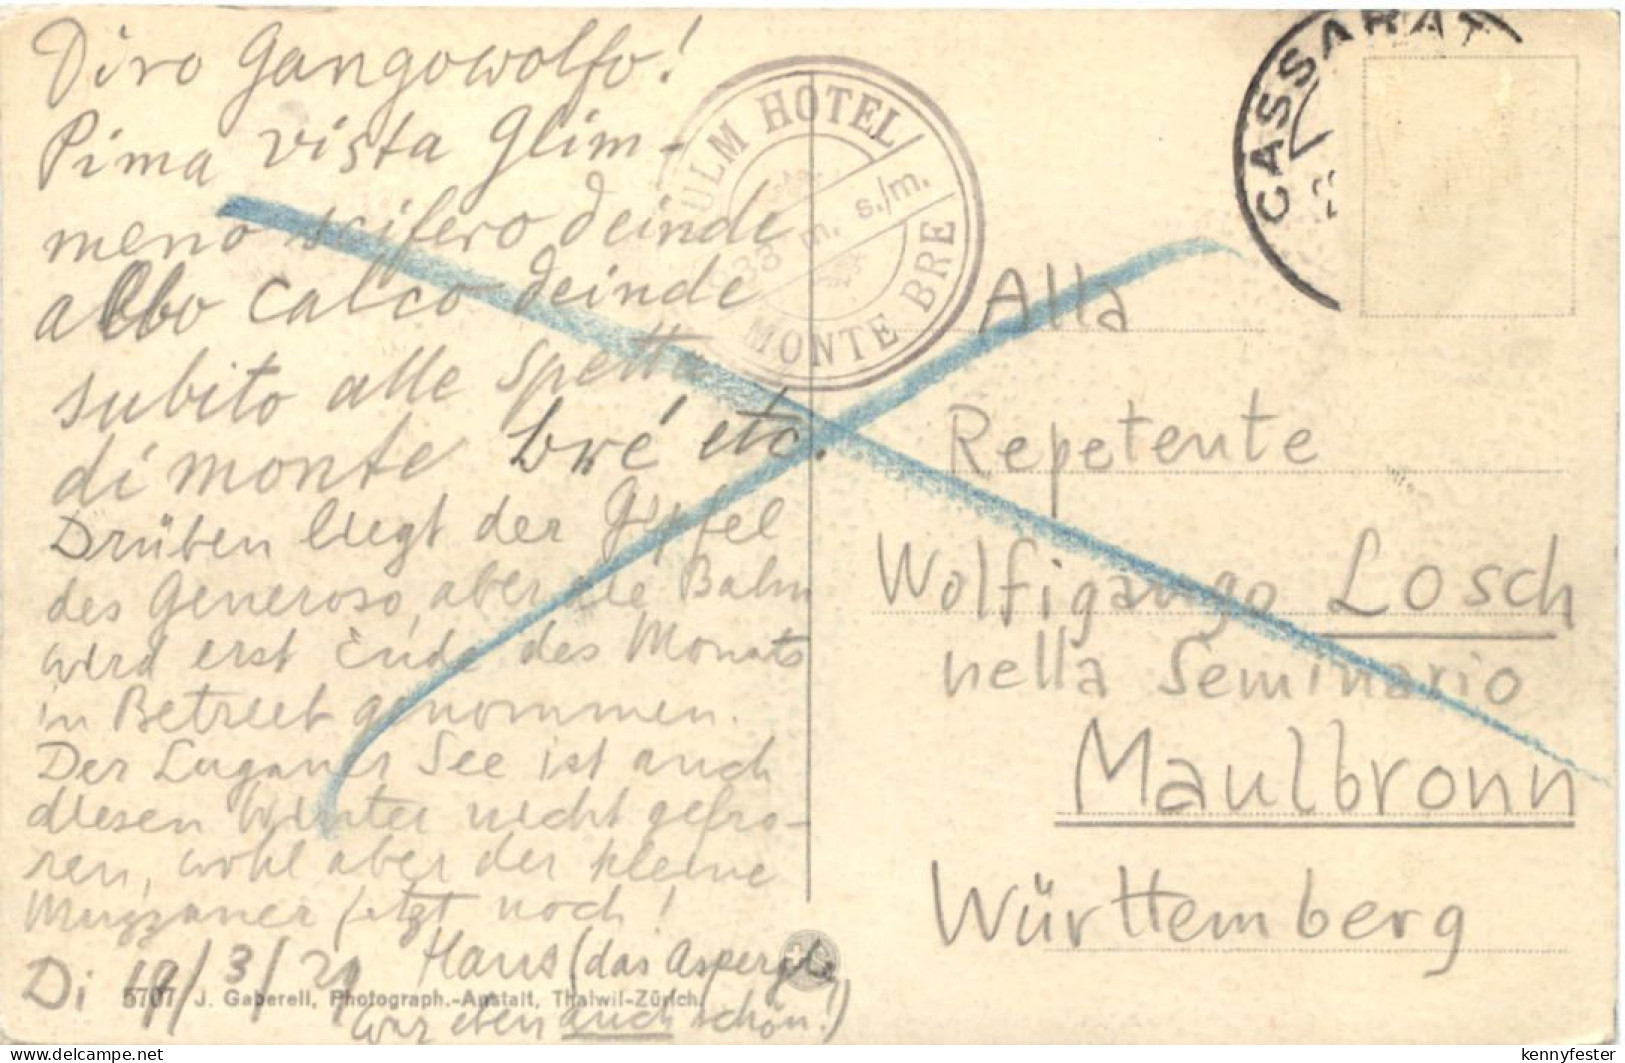 Diro Gangowolfo!
Pima vista Glim-
meno scifero deinde
albo calco deinde
subito alle spetta
di monte bré etc.
Drüben liegt der Gipfel
des Generoso, aber die Bahn
wird erst Ende des Monats
in Betrieb genommen.
Der Luganer See ist auch
diesen Winter nicht gefro-
ren, wohl aber der kleine
Muzzaner jetzt noch!
Di 19/3/29 Hans (das
war eben auch schön!)
5707 J. Gaberell, Photograph.-Anstalt, Thalwil-Zürich.
KULM HOTEL
933 m. s./m.
MONTE BRE
CASSARAT
Alla
Repetente
Wolfigango Losch
nella Seminario
Maulbronn
Württemberg
www.delcampe.net
kennyfester